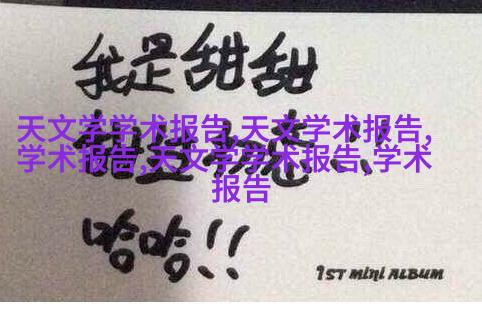 我是甜甜
天文学学术报告,天文学术报告,
学术报告,天文学学术报告,学术
报告
哈哈!!
1ST MINI ALBUM